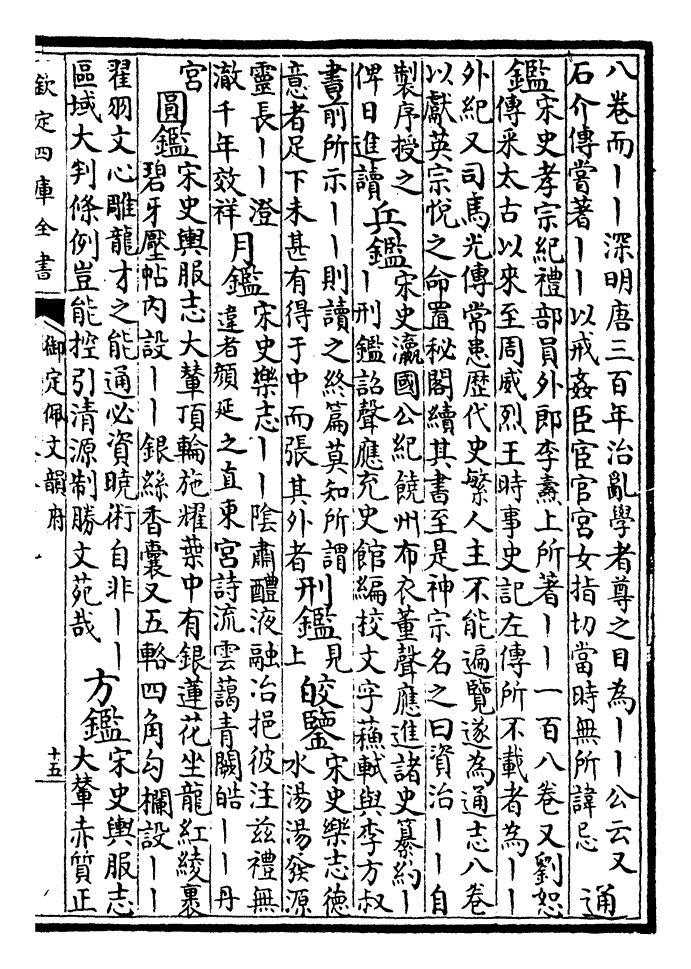 八卷而丨丨深明唐三百年治亂學者尊之目為丨丨公云又
石介傳嘗著丨丨以戒姦臣宦官宮女指切當時無所諱忌
通
鑑
宋史孝宗紀禮部員外郎李燾上所著丨丨一百八卷又劉恕
傳采太古以來至周威烈王時事史記左傳所不載者為丨丨
外紀又司馬光傳常患歴代史繁人主不能遍覽遂為通志八卷
以獻英宗悅之命置秘閣續其書至是神宗名之曰資治丨丨自
製序授之
俾日進讀
兵鑑
宋史瀛國公紀饒州布衣董聲應進諸史纂約丨
丨刑鑑詔聲應充史館編挍文字蘓軾與李方叔
書前所示丨丨則讀之終篇莫知所謂
意者足下未甚有得于中而張其外者
刑鑑
見
上
皎鑒
宋史樂志德
水湯湯發源
靈長丨丨澄
澈千年效祥
月鑑
宋史樂志丨丨陰肅醴液融冶挹彼注兹禮無
違者顔延之直東宮詩流雲藹青闕皓丨丨丹
宮
圓鑑
宋史輿服志大輦頂輪施耀葉中有銀蓮花坐龍紅綾裹
碧牙壓帖内設丨丨銀絲香囊又五輅四角勾欄設丨丨
翟羽文心雕龍才之能通必資曉術自非丨丨
區域大判條例豈能控引清源制勝文苑哉
方鑑
宋史輿服志
大輦赤質正
欽定四庫全書
御定佩文韻府
十五